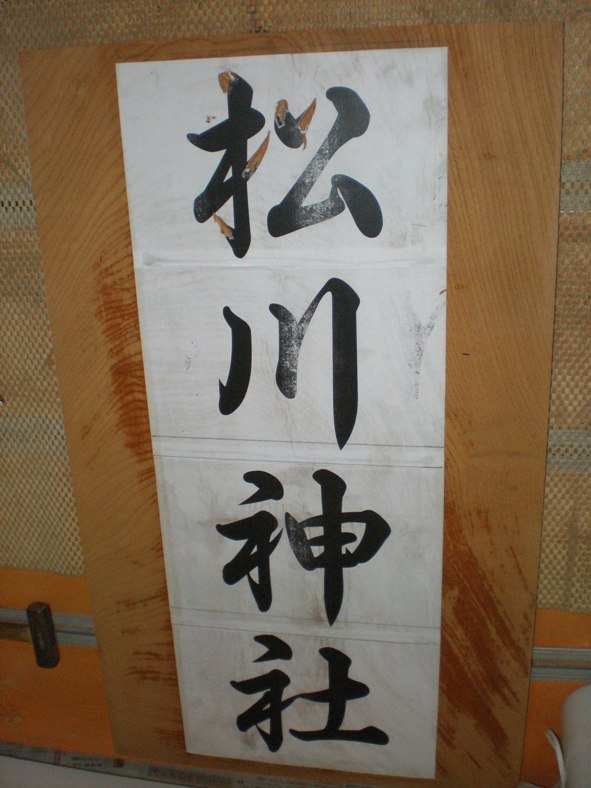 松川神社